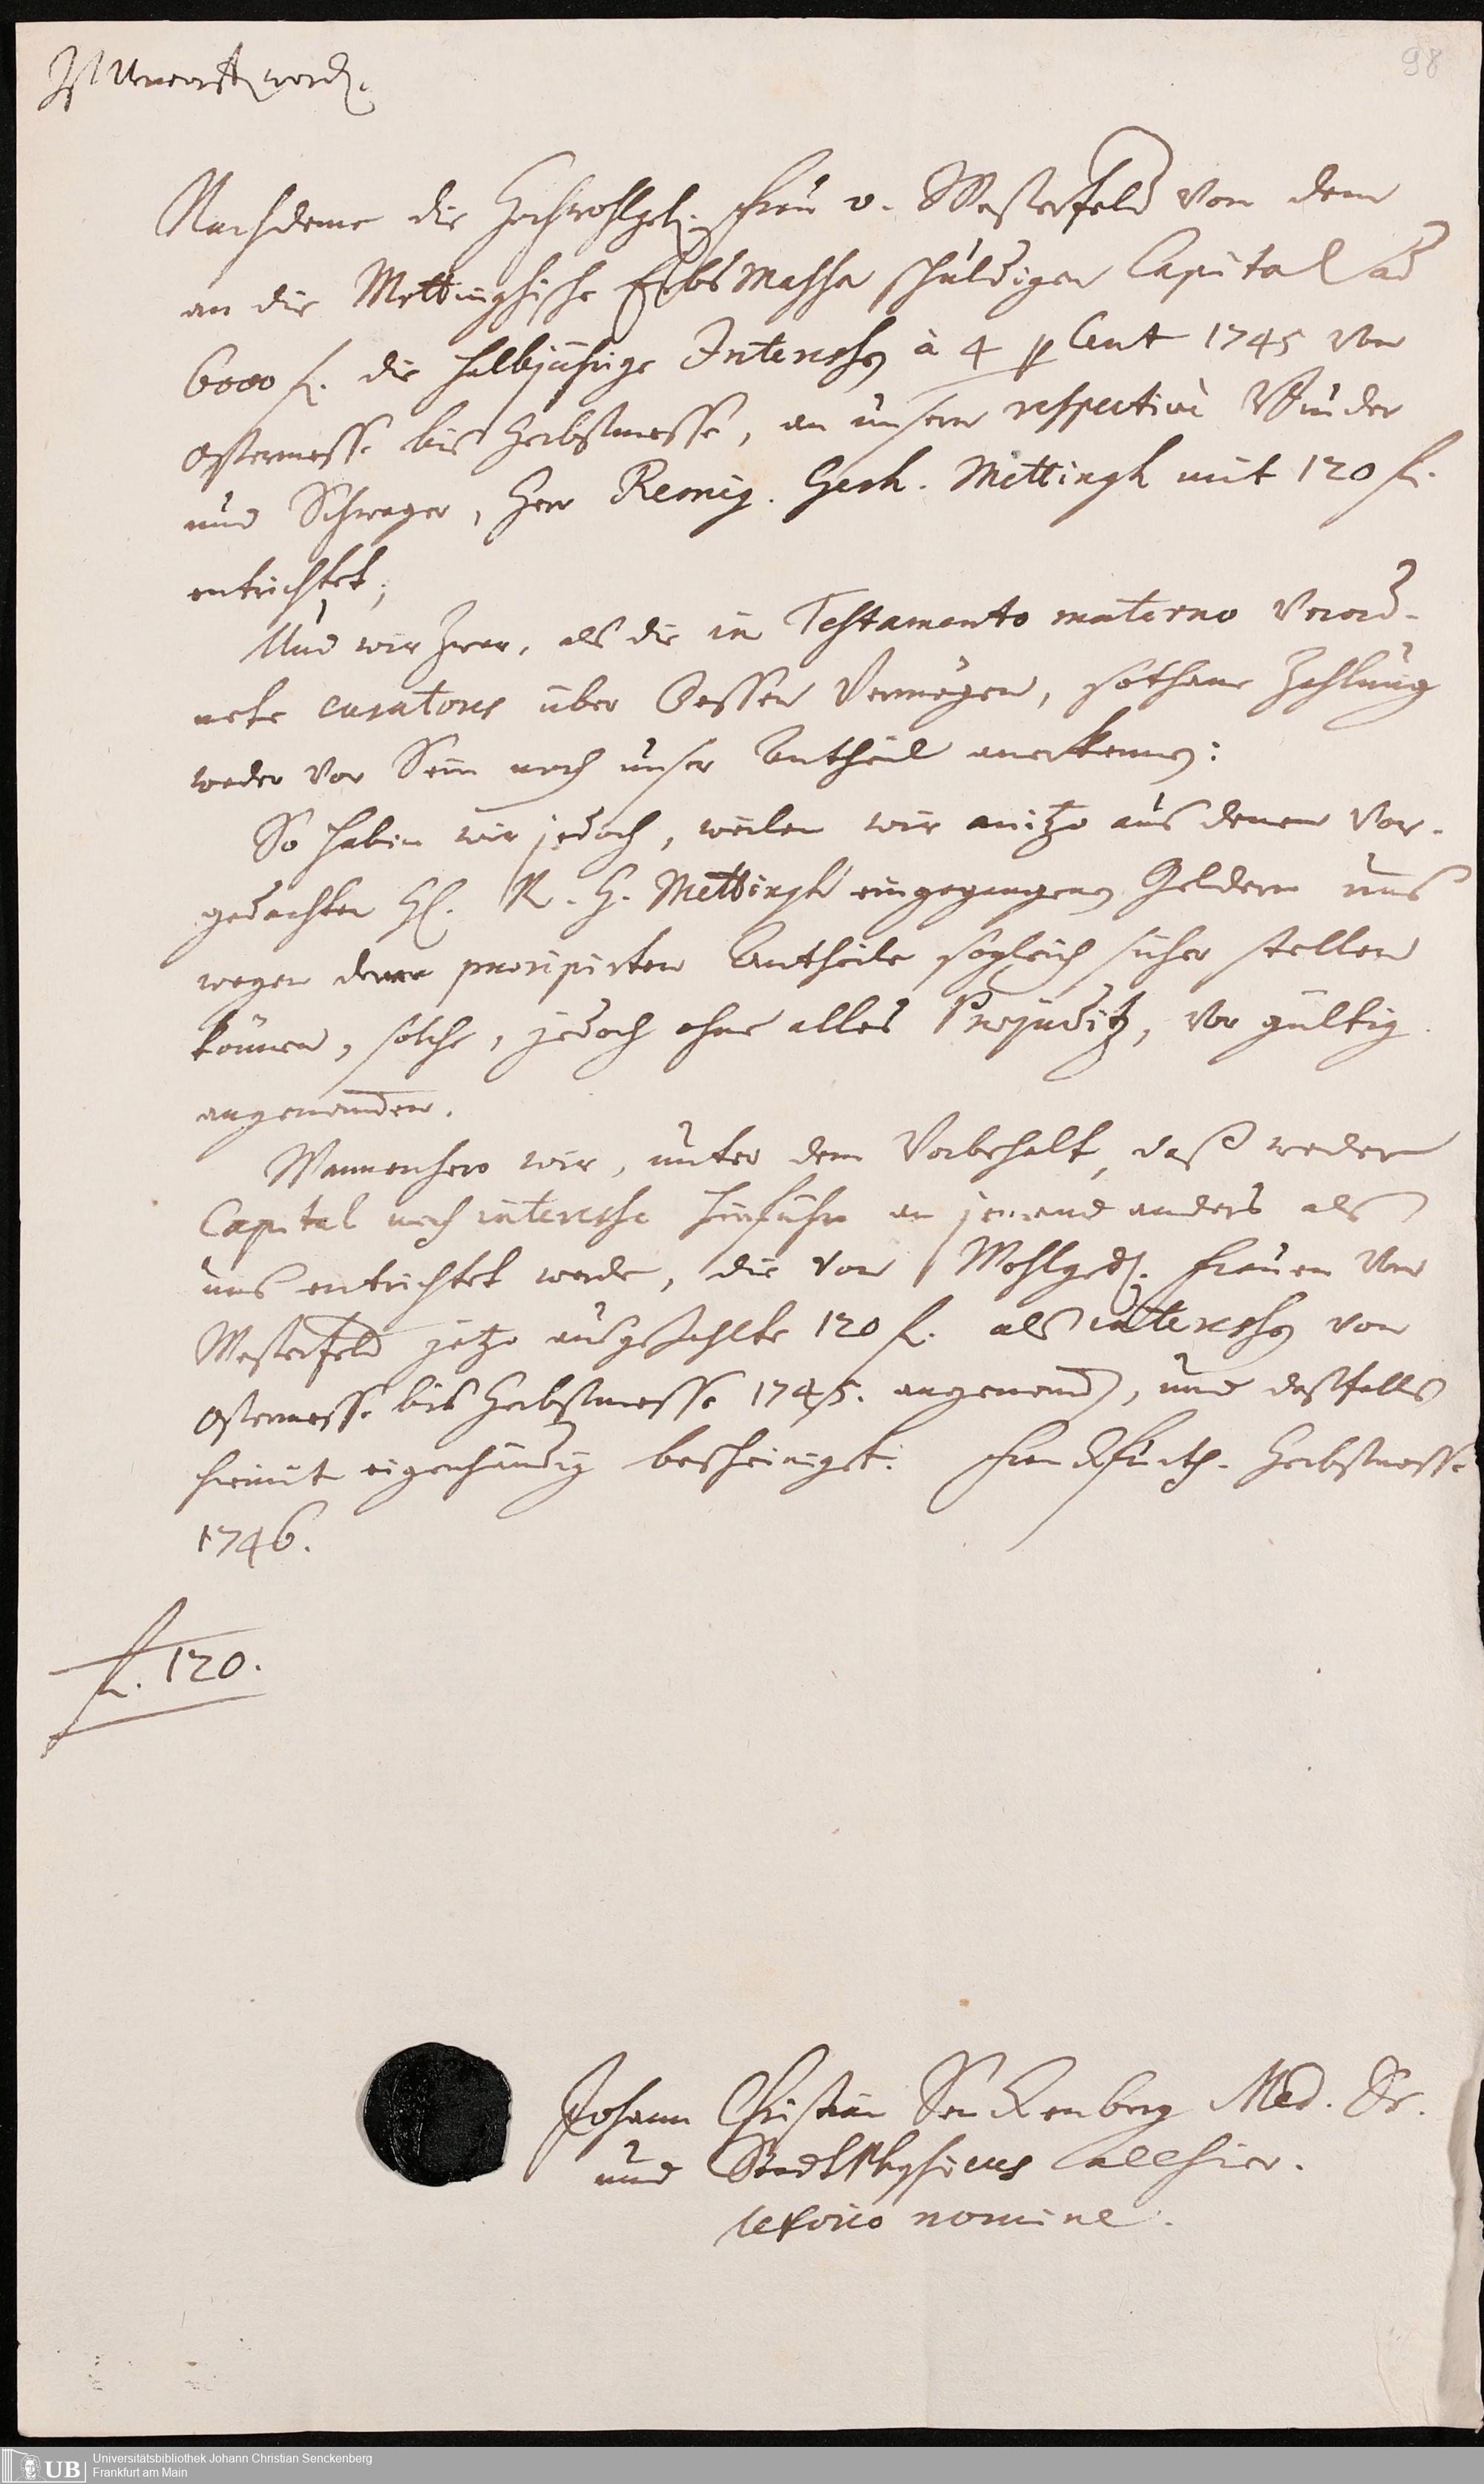 98
Ist worden.
Nachdeme die Hochwohlgeb. Frau v. Westerfeld von dem
an die Mettinghische Erbs Massa schuldigen Capital ad
6000 f. die halbjährige Interessen à 4 p Cent 1745 von
Ostermesse bis Herbstmesse, an unsern respective Bruder
und Schwager, Herr Remig. Gerh. Mettingh mit 120 f.
entrichtet;
Und wir zwar, als die in Testamento materno verord-
nete curatores über dessen Vermögen, sothane Zahlung
weder vor Sein noch unser Antheil anerkennen:
So haben wir jedoch, weilen wir anitzo aus denen vor-
gedachten H. R. G. Mettingh eingegangenen Geldern uns
wegen derer percipirten Antheile sogleich sicher stellen
können, solche, jedoch ohne alles Prejuditz, vor gültig
angenommen.
Wannenhero wir, unter dem Vorbehalt, daß weder
Capital noch interesse hinführo an jemand anders als
uns entrichtet werde, die von Wohlged. Frauen von
Westerfeld jetzo ausgezahlte 120 f. als interessen von
Ostermesse bis Herbstmesse 1745. angenommen, und desfalls
hiemit eigenhändig bescheiniget. Franckfurth. Herbstmesse
1746.
f. 120.
Johann Christian Senckenberg Med. Dr.
und Stadt Physicus allhier.
uxorio nomine.
UB
Universitätsbibliothek Johann Christian Senckenberg
Frankfurt am Main